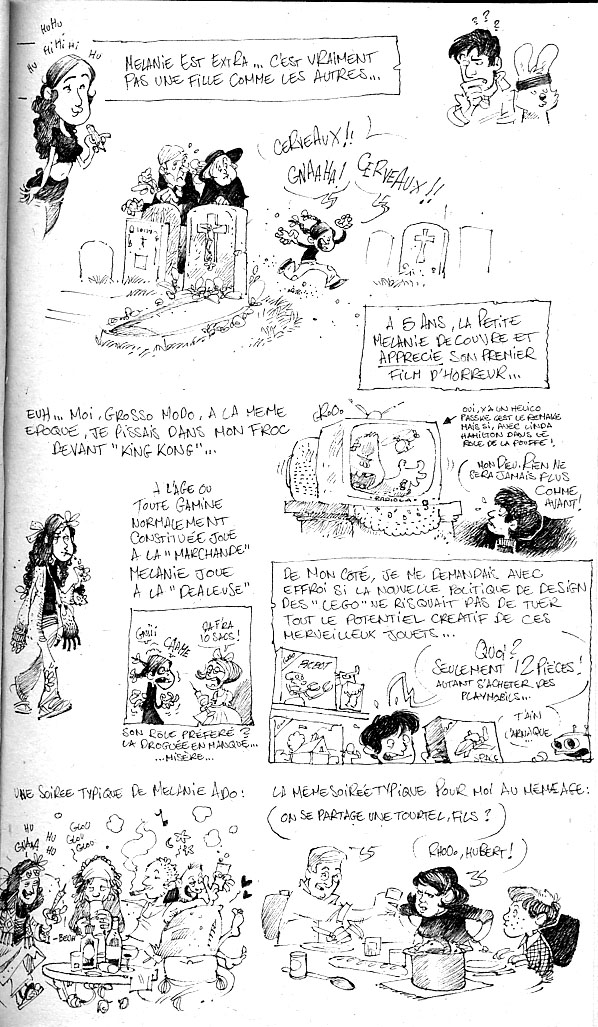 HuHu
Hu HiHiHi Hu
MELANIE EST EXTRA... C'EST VRAIMENT
PAS UNE FILLE COMME LES AUTRES...
? ? ?
CERVEAUX!!
GNAAHA!
CERVEAUX!!
A 5 ANS, LA PETITE
MELANIE DECOUVRE ET
APPRECIE SON PREMIER
FILM D'HORREUR...
EUH... MOI, GROSSO MODO, A LA MEME
EPOQUE, JE PISSAIS DANS MON FROC
DEVANT "KING KONG"...
GRODO
RADIOLA
OUI, Y A UN HELICO
PASKE C'EST LE REMAKE
MAIS SI, AVEC LINDA
HAMILTON DANS LE
ROLE DE LA POUFFE!
MON DIEU, RIEN NE
SERA JAMAIS PLUS
COMME
AVANT!
A L'ÂGE OU
TOUTE GAMINE
NORMALEMENT
CONSTITUÉE JOUE
A LA "MARCHANDE"
MELANIE JOUE
A LA "DEALEUSE"
GNIII
CAME
ÇA F'RA
10 SACS!
SON RÔLE PRÉFÉRÉ?
LA DROGUÉE EN MANQUE...
...MISÈRE...
DE MON CÔTÉ, JE ME DEMANDAIS AVEC
EFFROI SI LA NOUVELLE POLITIQUE DE DESIGN
DES "LEGO" NE RISQUAIT PAS DE TUER
TOUT LE POTENTIEL CREATIF DE CES
MERVEILLEUX JOUETS...
QUOI?
SEULEMENT 12 PIÈCES!
AUTANT S'ACHETER DES
PLAYMOBILS...
T'AIN
L'ARNAQUE
UNE SOIREE TYPIQUE DE MELANIE ADO:
HU
GNAHA HU
HU
GLOU
GLOU
GLOU
-BEOH
LA MEME SOIREE TYPIQUE POUR MOI AU MEME AGE:
ON SE PARTAGE UNE TOURTEL, FILS?
RHOOO, HUBERT!